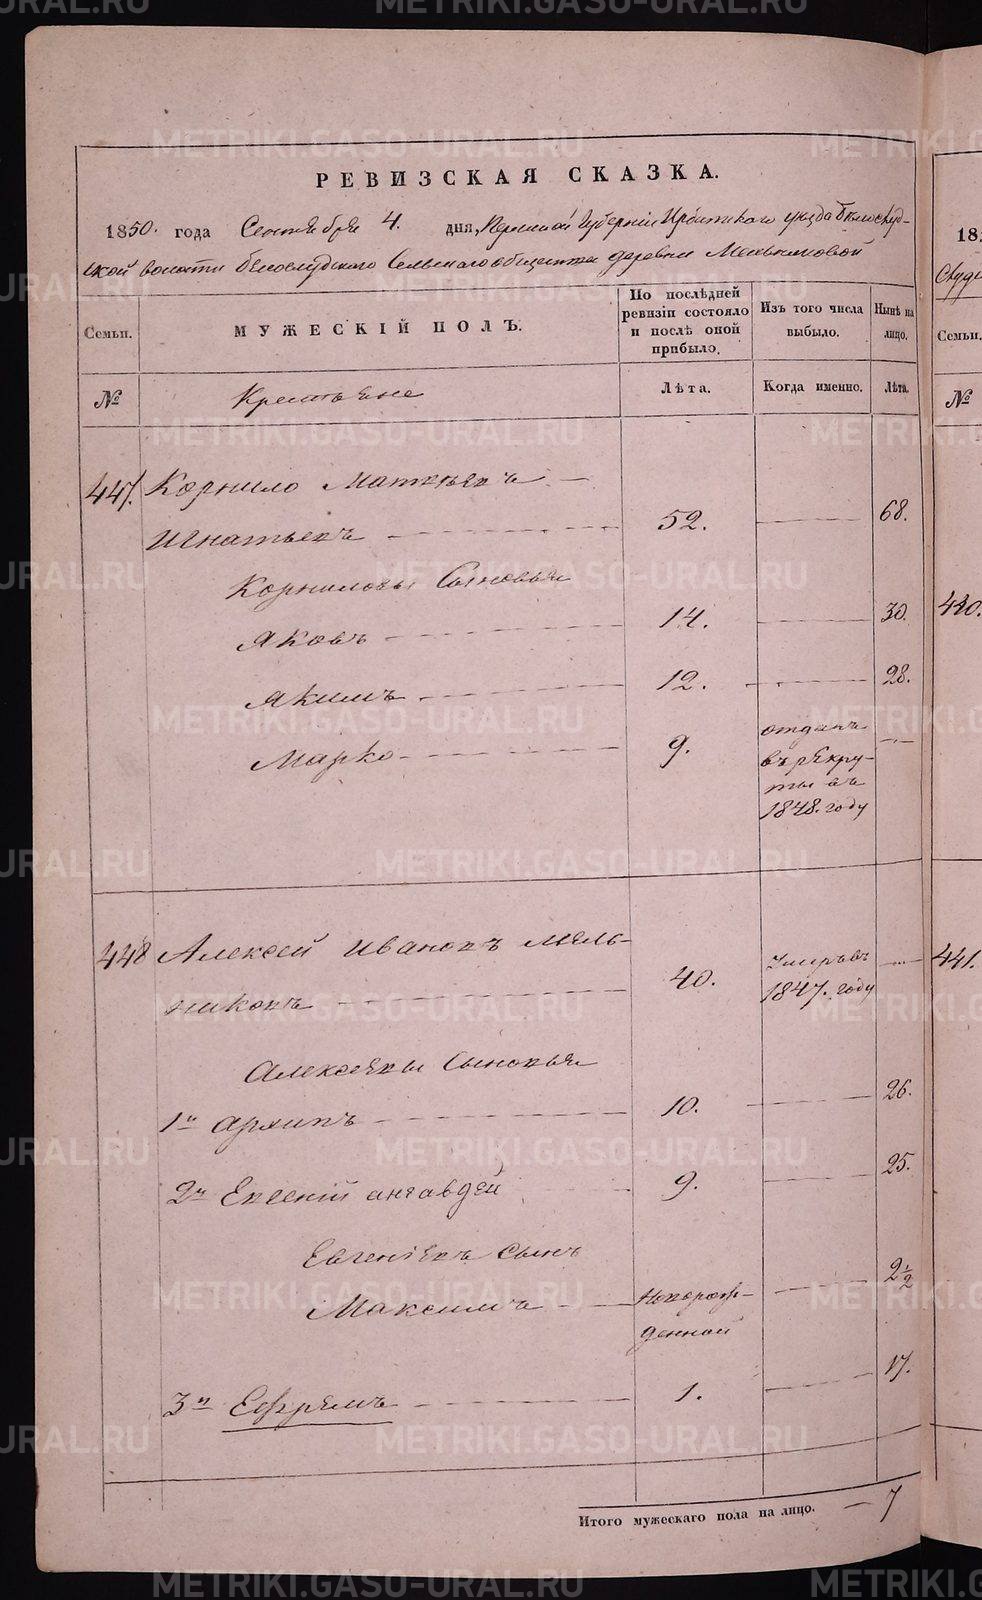 РЕВИЗСКАЯ СКАЗКА.
1850. года Сентября 4. дня, Пермской Губерніи Ирбитскаго уезда Белослуд-
ской волости белослудского Сельского общества деревни Мельниковой
Семьи.
МУЖЕСКІЙ ПОЛЪ.
По послѣдней ревизіи состояло и послѣ оной прибыло.
Изъ того числа выбыло.
Нынѣ на лицо.
№
Крестьяне
Лѣта.
Когда именно.
Лѣта.
447. Корнило Матвѣевъ
Игнатьевъ 52. 68.
Корниловы Сыновья
Яковъ 14. 30.
Якимъ 12. 28.
Марко 9. отданъ
въ рѣкру-
ты въ
1848. году
448 Алексей Ивановъ Мѣль-
никовъ 40. умръ въ
1847. году
Алексѣевы Сыновья
1й Архипъ 10. 26.
2й Евгений 9. 25.
Евгенiевъ Сынъ
Максимъ Новорож-
денной 2½
3й Ефрѣмъ 1. 17.
Итого мужескаго пола на лицо. — 7
18
Слуд
Семьи.
№
440.
441.
METRIKI.GASO-URAL.RU